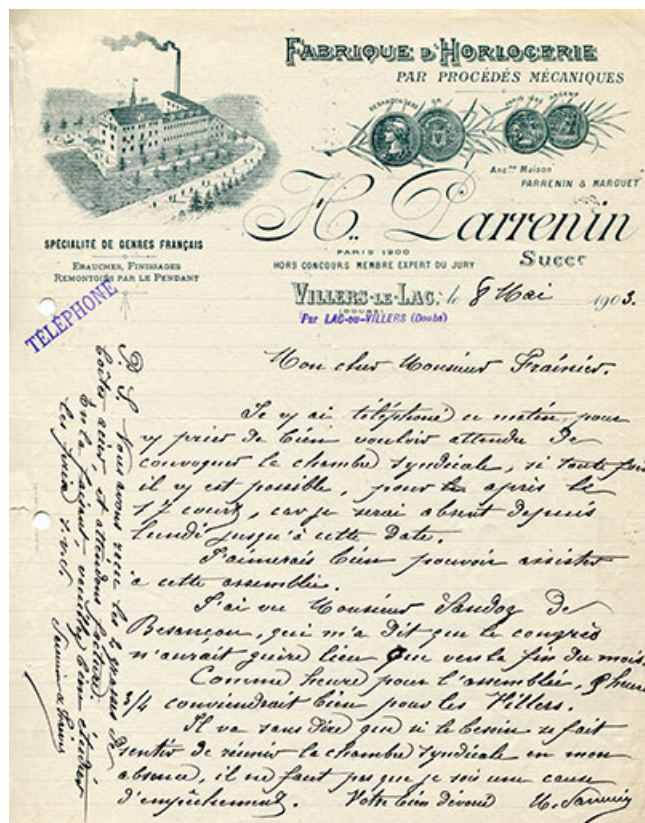 FABRIQUE D'HORLOGERIE
PAR PROCÉDÉS MÉCANIQUES
BESANÇON OR
PARIS ARGENT
Ancne Maison
PARRENIN & MARGUET
H. Parrenin
Succr
SPÉCIALITÉ DE GENRES FRANÇAIS
EBAUCHES, FINISSAGES
REMONTOIRS PAR LE PENDANT
PARIS 1900
HORS CONCOURS MEMBRE EXPERT DU JURY
TÉLÉPHONE
VILLERS-LE-LAC, le 8 Mai 1903.
(DOUBS)
Par LAC-ou-VILLERS (Doubs)
Mon cher Monsieur Frainier.
Je vs ai téléphoné ce matin, pour
vs prier de bien vouloir attendre de
convoquer le chambre syndicale, si toute fois
il vs est possible, pour après le
17 court, car je serai absent depuis
lundi jusqu'à cette date.
J'aimerais bien pouvoir assister
à cette assemblée.
J'ai vu Monsieur Sandoz de
Besançon, qui m'a dit que le congrès
n'aurait guère lieu que vers la fin du mois.
Comme heure pour l'assemblée, heure
3/4 conviendrait bien pour les Villers.
Il va sans dire que si le besoin se fait
sentir de réunir la chambre syndicale en mon
absence, il ne faut pas que je sois une cause
d'empêchement. Votre bien dévoué H. Parrenin
P.S. Nous avons reçu les grosses de
boîtes acier, et attendons facture.
En la faisant, veuillez bien étudier
les prix